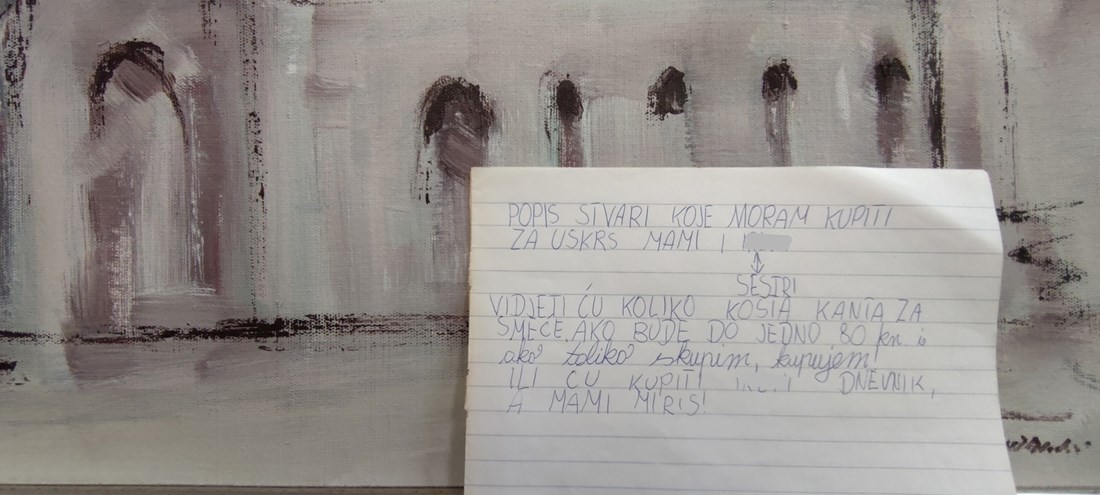 POPIS STVARI KOJE MORAM KUPITI
ZA USKRS MAMI I
SESTRI
VIDJETI ĆU KOLIKO KOSTA KANTA ZA
SMEĆE. AKO BUDE DO JEDNO 80 kn i
ako toliko skupim, kupujem
ILI ĆU KUPITI DNEVNIK,
A MAMI MIRIS!